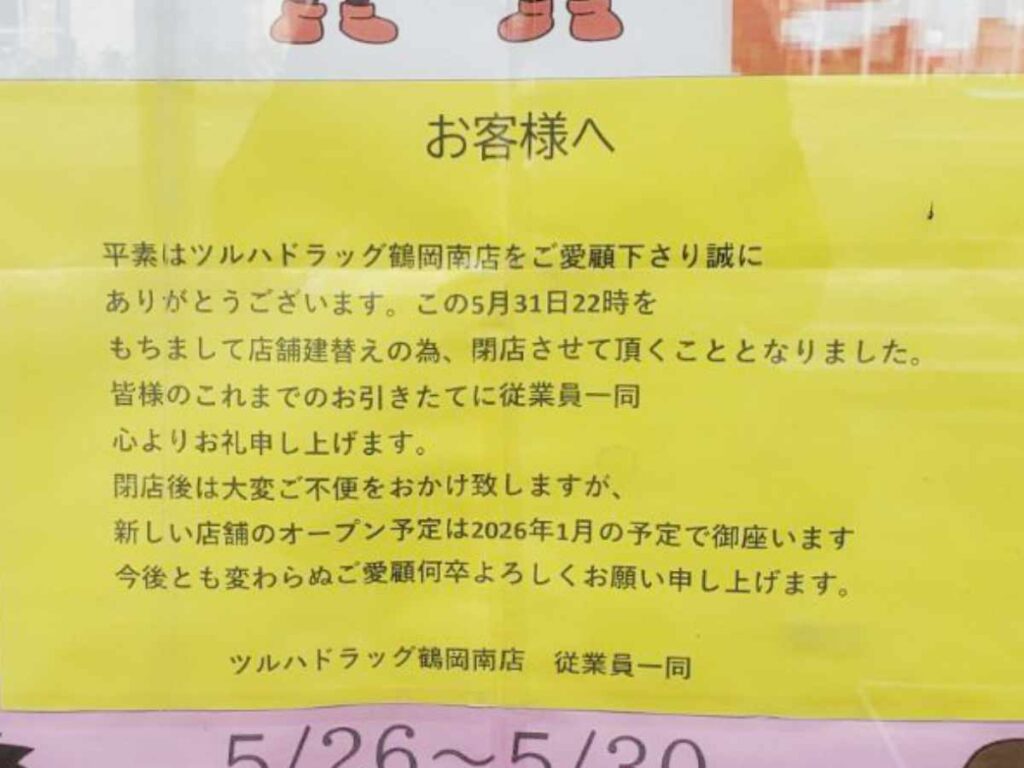 お客様へ
平素はツルハドラッグ鶴岡南店をご愛顧下さり誠に
ありがとうございます。この5月31日22時を
もちまして店舗建替えの為、閉店させて頂くこととなりました。
皆様のこれまでのお引きたてに従業員一同
心よりお礼申し上げます。
閉店後は大変ご不便をおかけ致しますが、
新しい店舗のオープン予定は2026年1月の予定で御座います
今後とも変わらぬご愛顧何卒よろしくお願い申し上げます。
ツルハドラッグ鶴岡南店　従業員一同
5/26～5/30